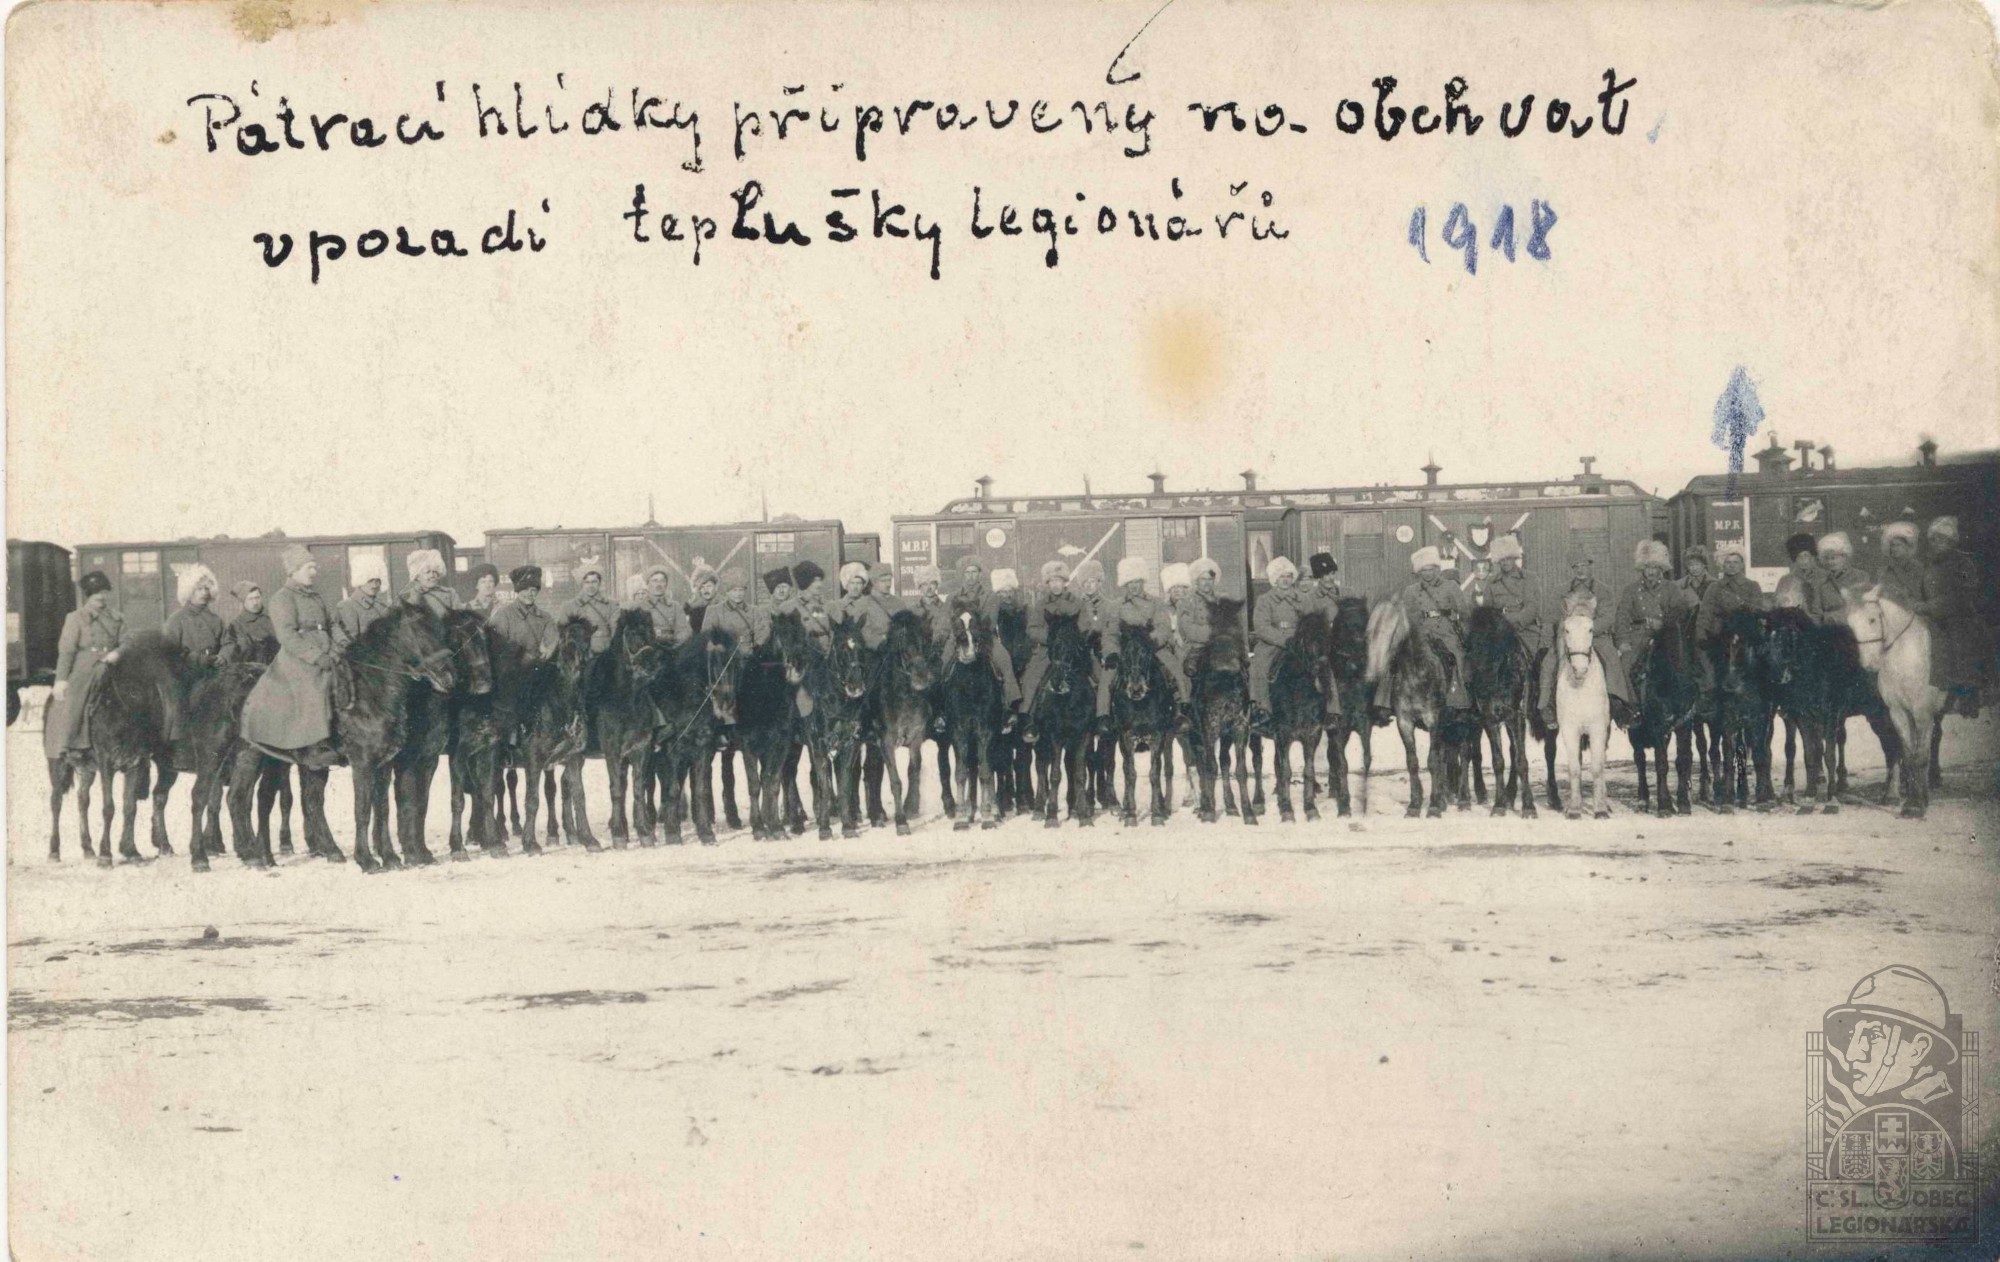 Pátrací hlídky připraveny na obchvat
vpozadí teplušky legionářů 1918
M.P.R.
M.P.K.
Č. SL. OBEC
LEGIONÁŘSKÁ